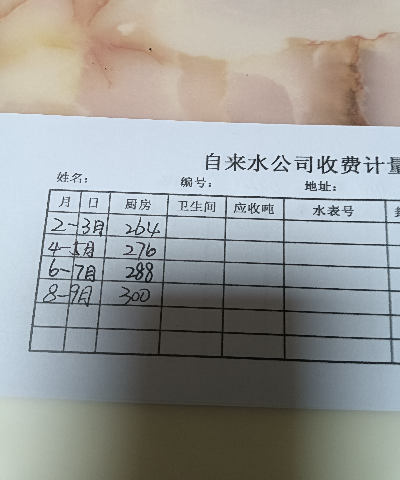 自来水公司收费计量
姓名： 编号： 地址：
月 日 厨房 卫生间 应收吨 水表号
2-3月 264
4-5月 276
6-7月 288
8-9月 300